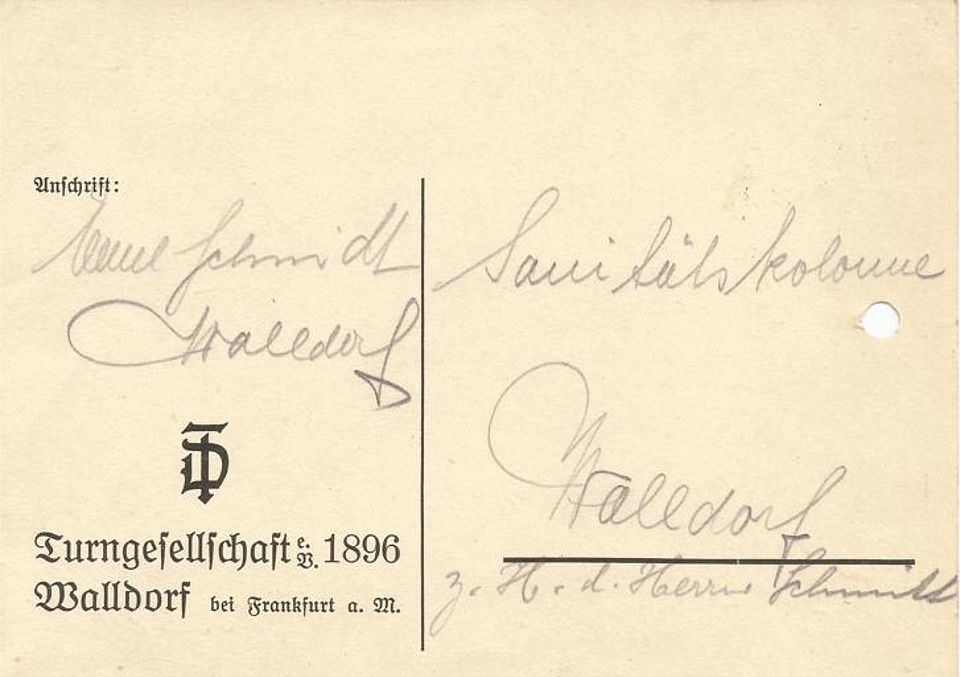 Anschrift:
Schmidt
Walldorf
Turngesellschaft e. V. 1896
Walldorf bei Frankfurt a. M.
Sanitätskolonne
Walldorf
z. H. d. Herrn Schmidt